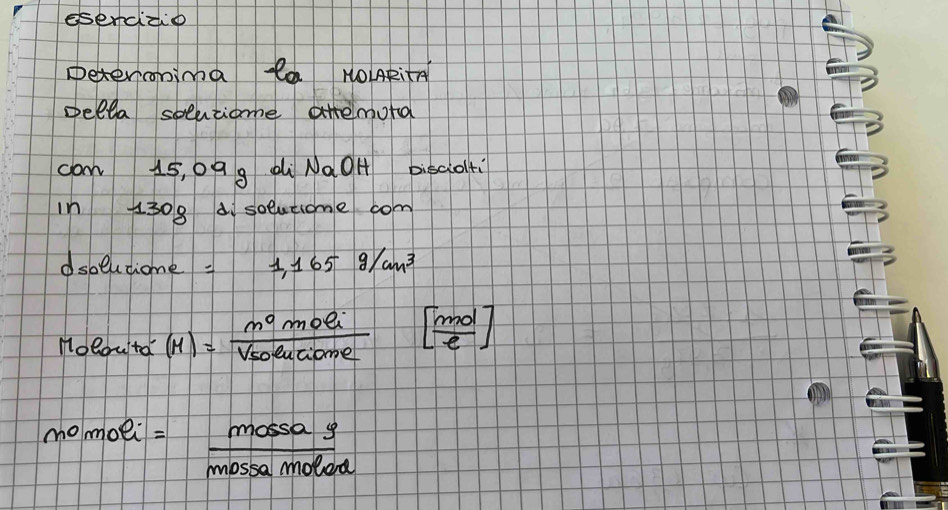 esercizio
Determina la MOLARITÀ
Della soluzione ottenuta
con 15,09 g di NaOH Disciolti
in 130g di soluzione con
dsoluzione = 1,165 g/cm³
Molarità (M) = n° moli / Vsoluzione [mol / l]
n° moli = massa g / massa molare